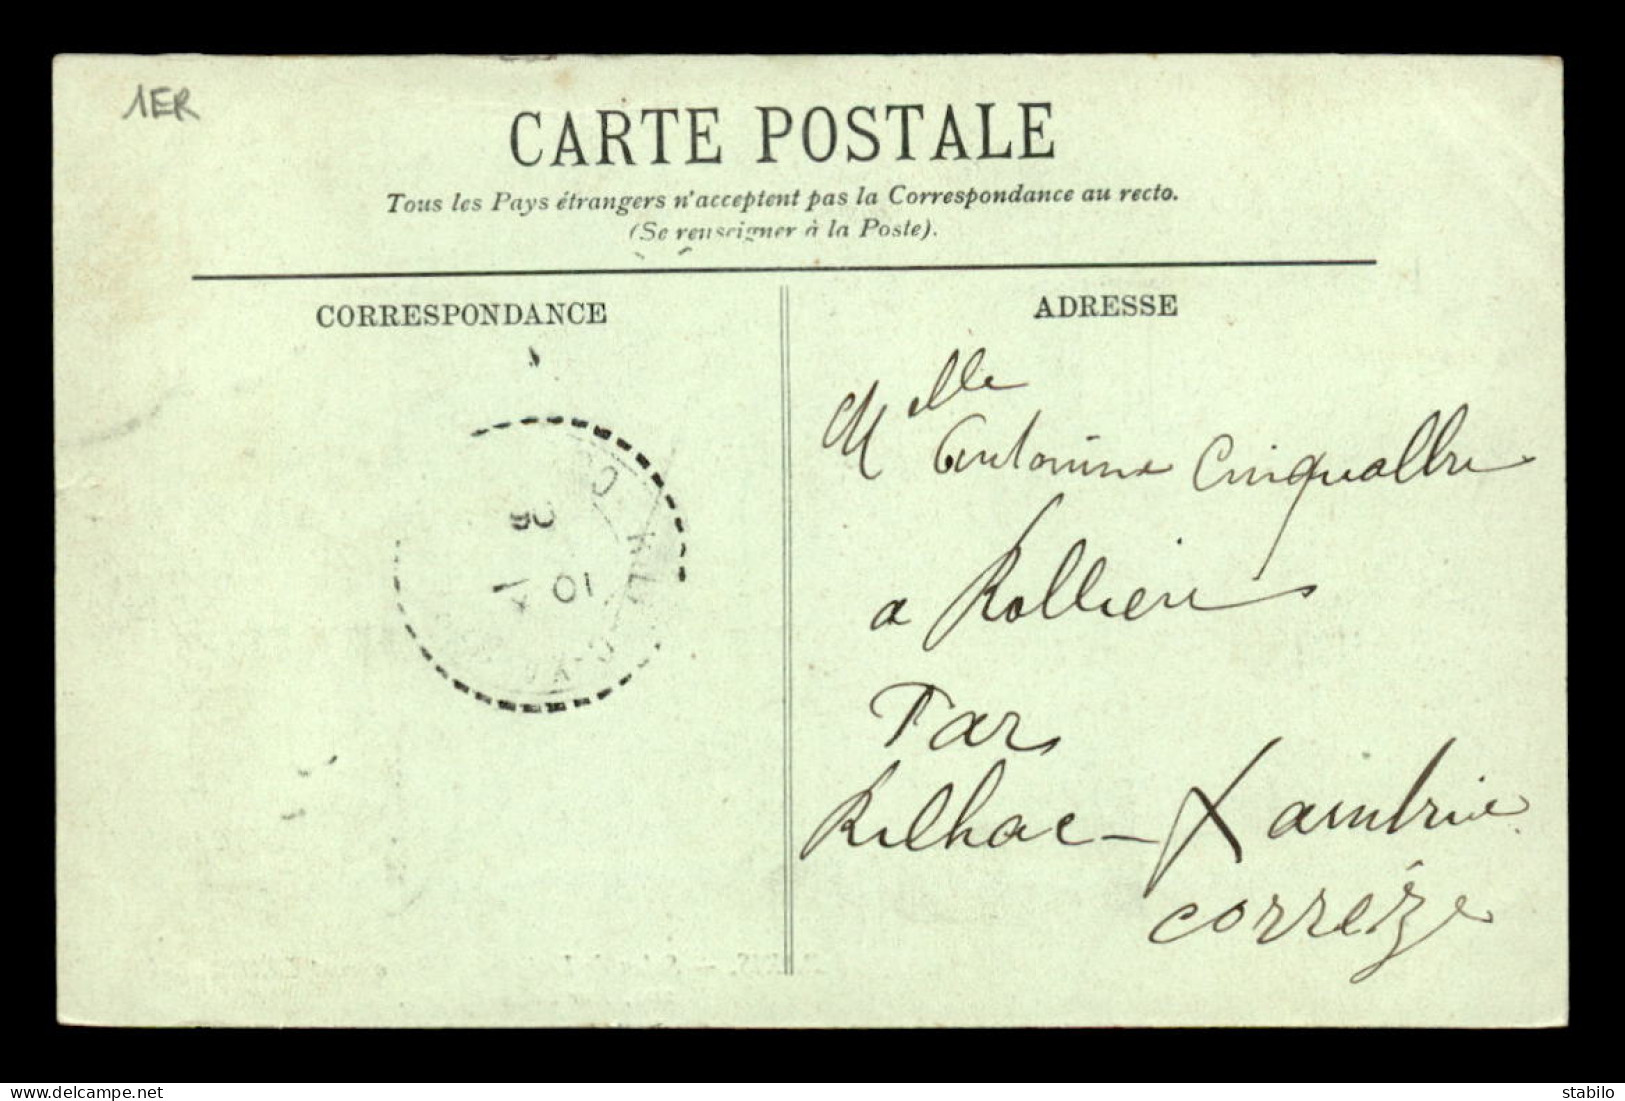 1ER
CARTE POSTALE
Tous les Pays étrangers n'acceptent pas la Correspondance au recto.
(Se renseigner à la Poste).
CORRESPONDANCE
ADRESSE
Melle
Antonine Cinqualbre
a Rollieri
Par
Rilhac-Xaintrie
Corrèze
10
06
delcampe.net
stabilo